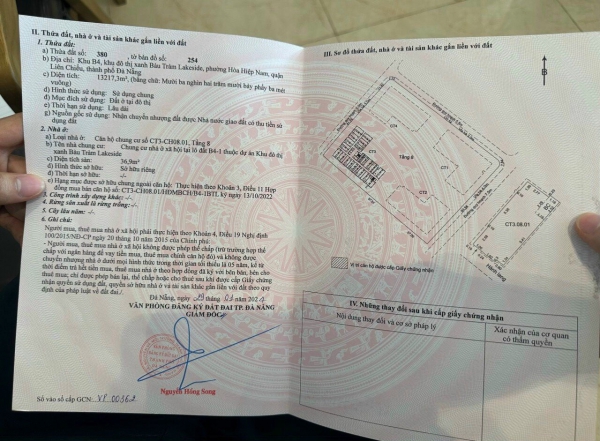 II. Thửa đất, nhà ở và tài sản khác gắn liền với đất
1. Thửa đất:
a) Thửa đất số: 380 , tờ bản đồ số: 254
b) Địa chỉ: Khu B4, khu đô thị xanh Bàu Tràm Lakeside, phường Hòa Hiệp Nam, quận
Liên Chiểu, thành phố Đà Nẵng
c) Diện tích: 13217,3m², (bằng chữ: Mười ba nghìn hai trăm mười bảy phẩy ba mét
vuông)
d) Hình thức sử dụng: Sử dụng chung
đ) Mục đích sử dụng: Đất ở tại đô thị
e) Thời hạn sử dụng: Lâu dài
g) Nguồn gốc sử dụng: Nhận chuyển nhượng đất được Nhà nước giao đất có thu tiền sử
dụng đất
2. Nhà ở:
a) Loại nhà ở: Căn hộ chung cư số CT3-CH08.01, Tầng 8
b) Tên nhà chung cư: Chung cư nhà ở xã hội tại lô đất B4-1 thuộc dự án Khu đô thị
xanh Bàu Tràm Lakeside
c) Diện tích sàn: 36,9m²
d) Hình thức sở hữu: Sở hữu riêng
đ) Thời hạn sở hữu: -/-
e) Hạng mục được sở hữu chung ngoài căn hộ: Thực hiện theo Khoản 3, Điều 11 Hợp
đồng mua bán căn hộ số: CT3-CH08.01/HĐMBCH/B4-1BTL ký ngày 13/10/2022
3. Công trình xây dựng khác: -/-
4. Rừng sản xuất là rừng trồng: -/-
5. Cây lâu năm: -/-
6. Ghi chú:
Người mua, thuê mua nhà ở xã hội phải thực hiện theo Khoản 4, Điều 19 Nghị định
100/2015/NĐ-CP ngày 20 tháng 10 năm 2015 của Chính phủ:
- Người mua, thuê mua nhà ở xã hội không được phép thế chấp (trừ trường hợp thế
chấp với ngân hàng để vay tiền mua, thuê mua chính căn hộ đó) và không được
chuyển nhượng nhà ở dưới mọi hình thức trong thời gian tối thiểu là 05 năm, kể từ
thời điểm trả hết tiền mua, thuê mua nhà ở theo hợp đồng đã ký với bên bán, bên cho
thuê mua; chỉ được phép bán lại, thế chấp hoặc cho thuê sau khi được cấp Giấy chứng
nhận quyền sử dụng đất, quyền sở hữu nhà ở và tài sản khác gắn liền với đất theo quy
định của pháp luật về đất đai./.
Đà Nẵng, ngày 29 tháng 01 năm 2024
VĂN PHÒNG ĐĂNG KÝ ĐẤT ĐAI TP. ĐÀ NẴNG
GIÁM ĐỐC
Nguyễn Hồng Song
Số vào sổ cấp GCN: VP 00362
III. Sơ đồ thửa đất, nhà ở và tài sản khác gắn liền với đất
B
CT4
CT1
CT3
Tầng 8
CT2
CT3.08.01
Hành lang
Vị trí căn hộ được cấp Giấy chứng nhận
IV. Những thay đổi sau khi cấp giấy chứng nhận
Nội dung thay đổi và cơ sở pháp lý
Xác nhận của cơ quan
có thẩm quyền